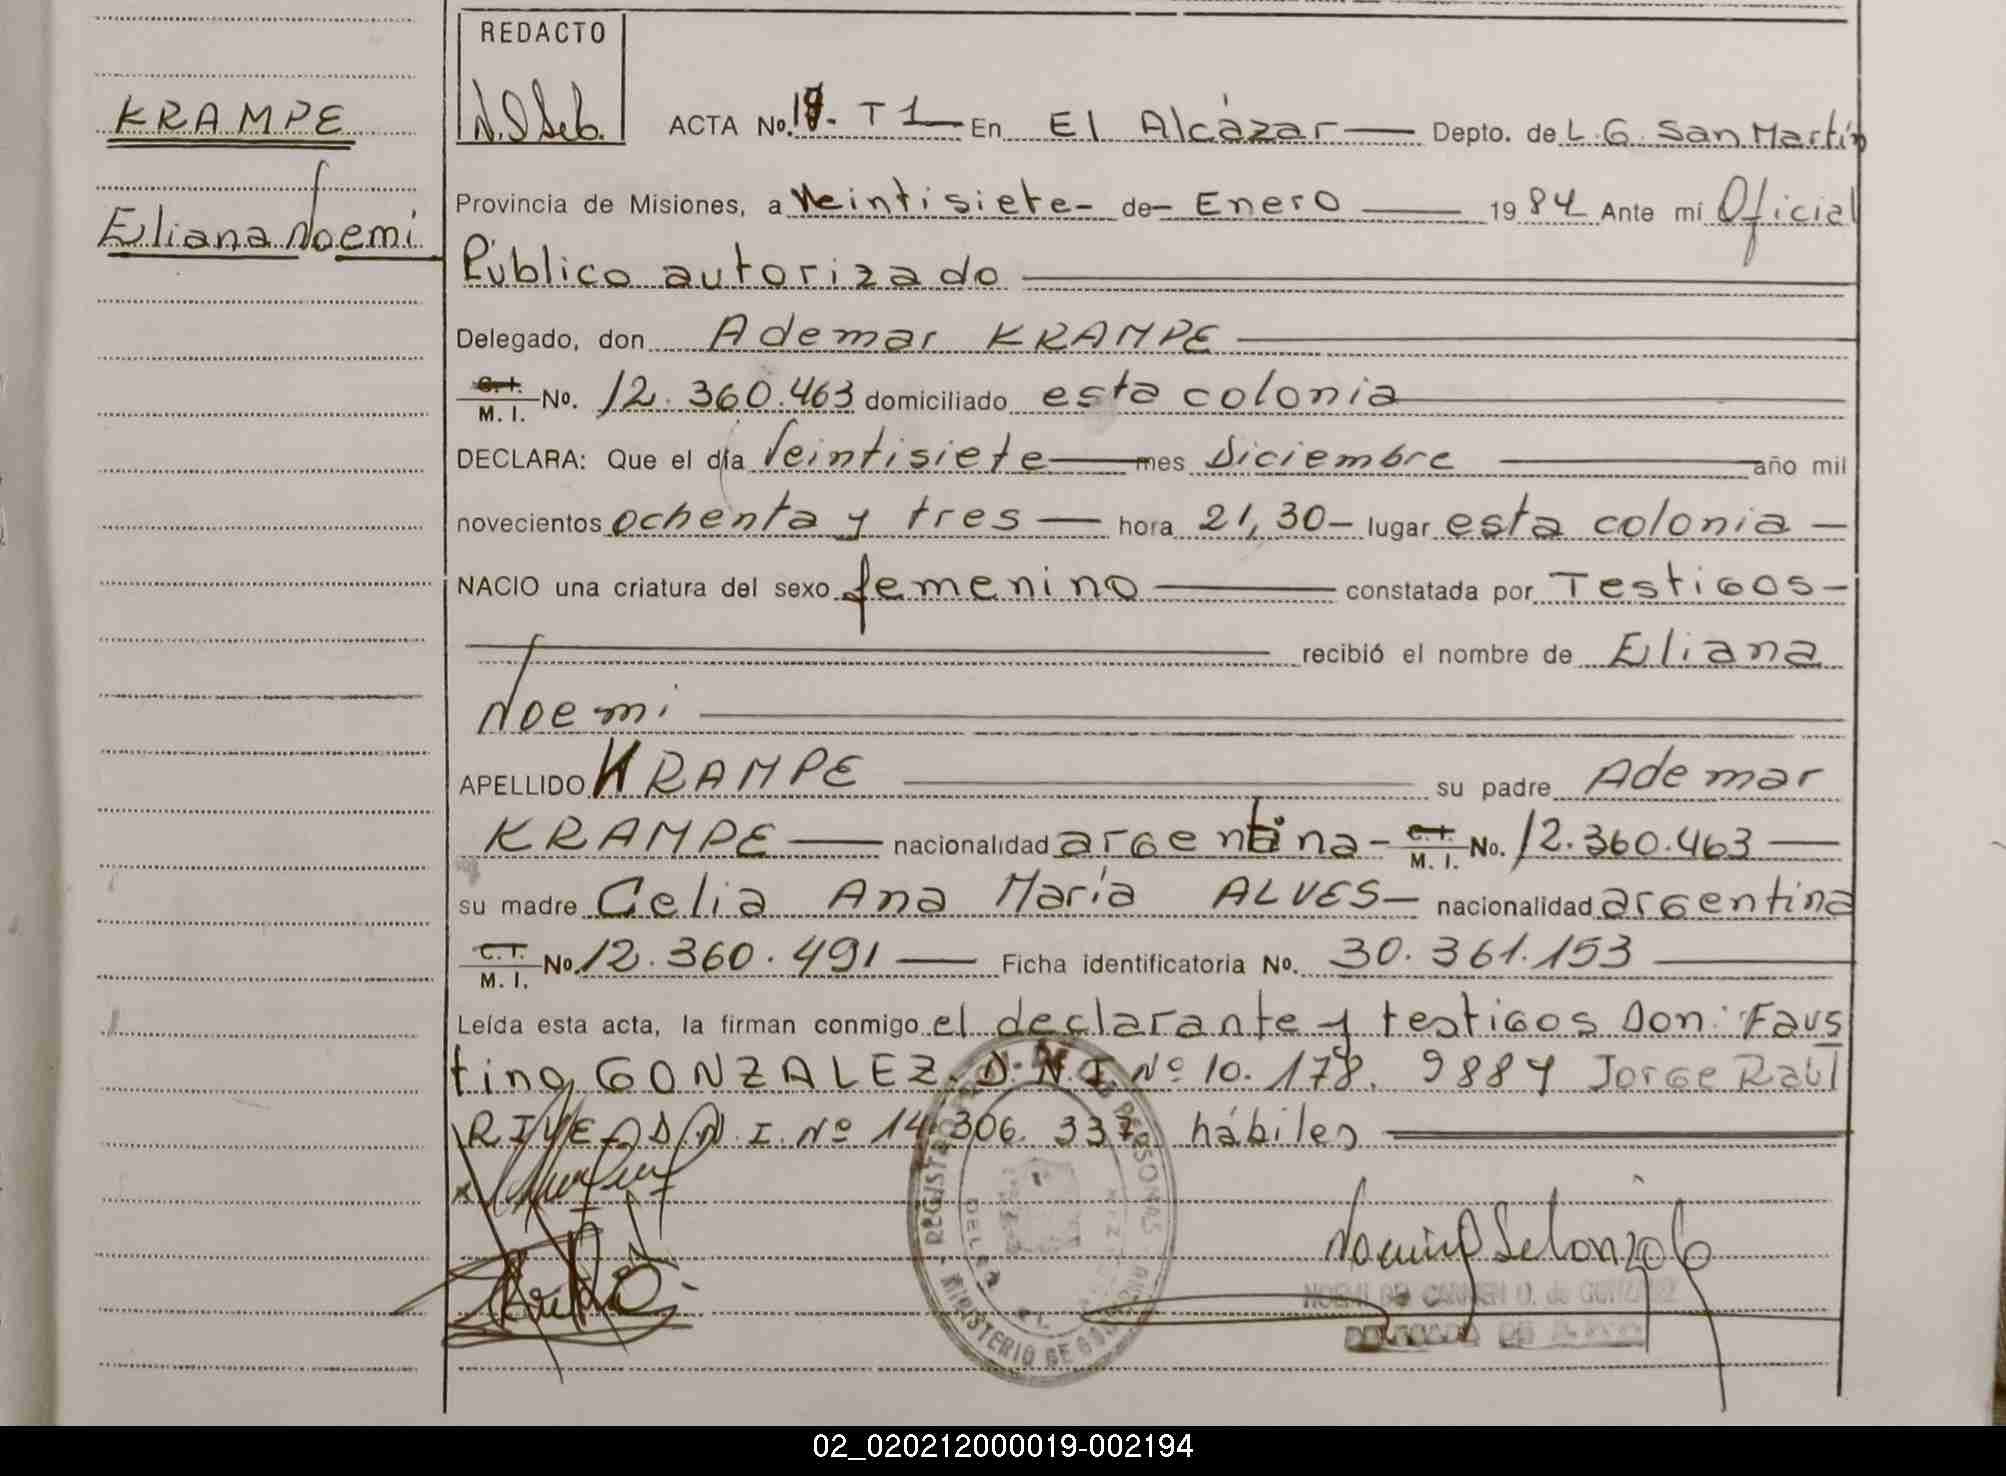 REDACTO
KRAMPE
Eliana Noemi
ACTA No. T1 En El Alcázar Depto. de L. G. San Martín
Provincia de Misiones, a Veintisiete de Enero 1984 Ante mí Oficial
Público autorizado
Delegado, don Ademar KRAMPE
C.I. M. I. No. 12.360.463 domiciliado esta colonia
DECLARA: Que el día Veintisiete mes Diciembre año mil
novecientos ochenta y tres hora 21,30 lugar esta colonia
NACIO una criatura del sexo femenino constatada por Testigos
recibió el nombre de Eliana
Noemi
APELLIDO KRAMPE su padre Ademar
KRAMPE nacionalidad argentina C.I. M. I. No. 12.360.463
su madre Celia Ana María ALVES nacionalidad argentina
C.I. M. I. No. 12.360.491 Ficha identificatoria No. 30.361.153
Leída esta acta, la firman conmigo el declarante y testigos Don: Faus
tino GONZALEZ. D.N.I. Nº 10.178. Jorge Raúl
D.N.I. Nº 14.306.337 hábiles
REGISTRO PERSONAS
MINISTERIO DE
02_020212000019-002194